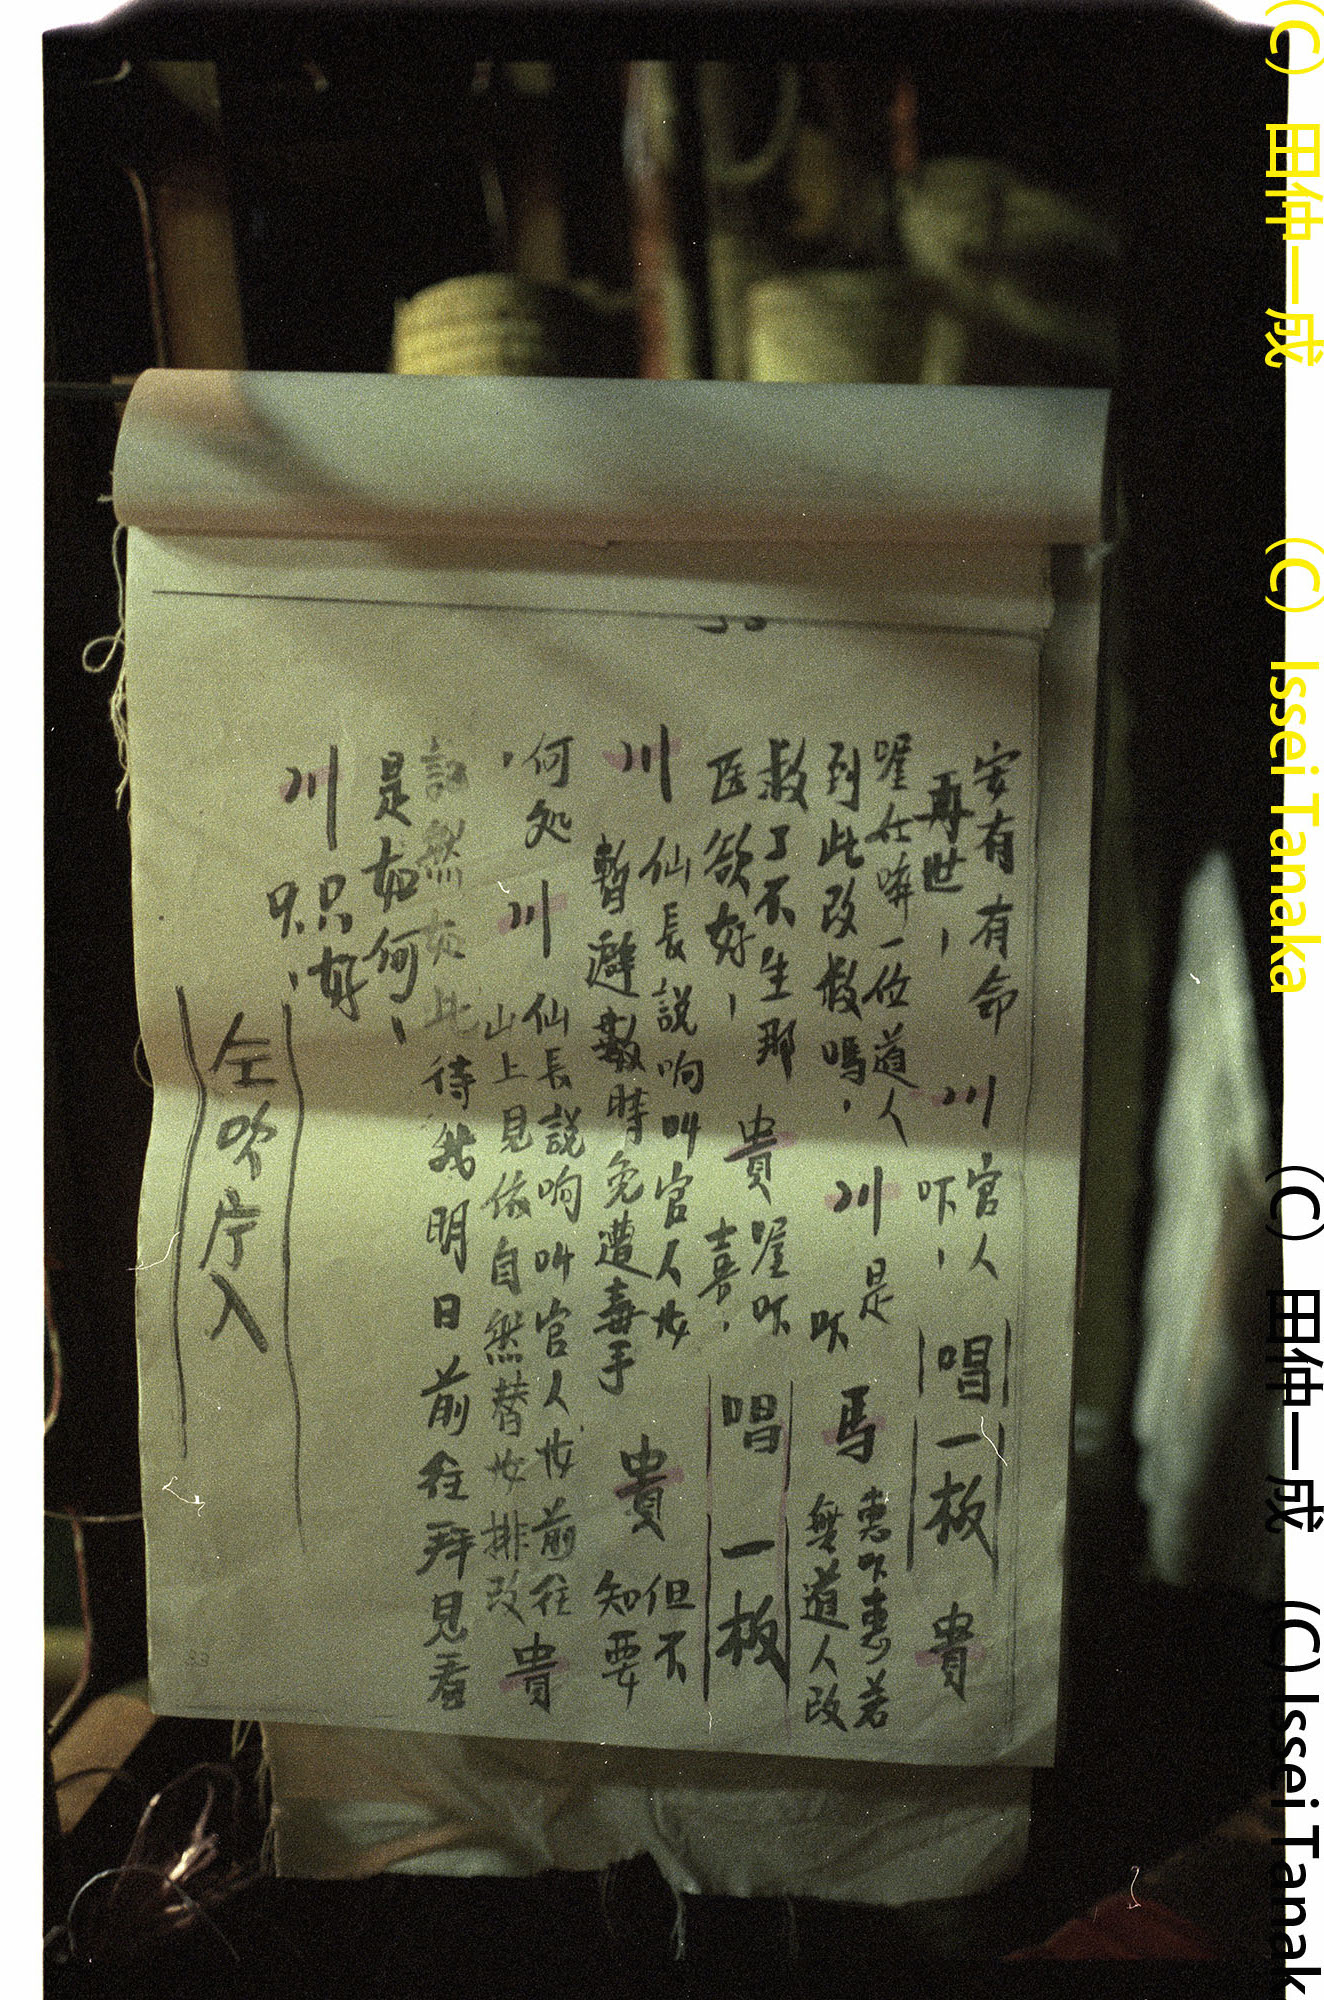 安有有命 川 官人
再世， 吓， 唱一板 貴
喔仕哗一位道人 川 是 馬 惠吓惠若
到此改救嗎， 吹 無道人改
救了不生那 貴 喔吹 唱一板
医欲好， 喜，
川 仙長説响叫官人妆 貴 但不
暫避數時免遭毒手 知要
何処 川 仙長説响叫官人妆前往 貴
， 山上見依自然替妆排改
説然如此待我明日前往拜見看
是如何，
川 只好
只，
仝吹庁入
33
(C) 田仲一成 (C) Issei Tanaka
(C) 田仲一成 (C) Issei Tanak